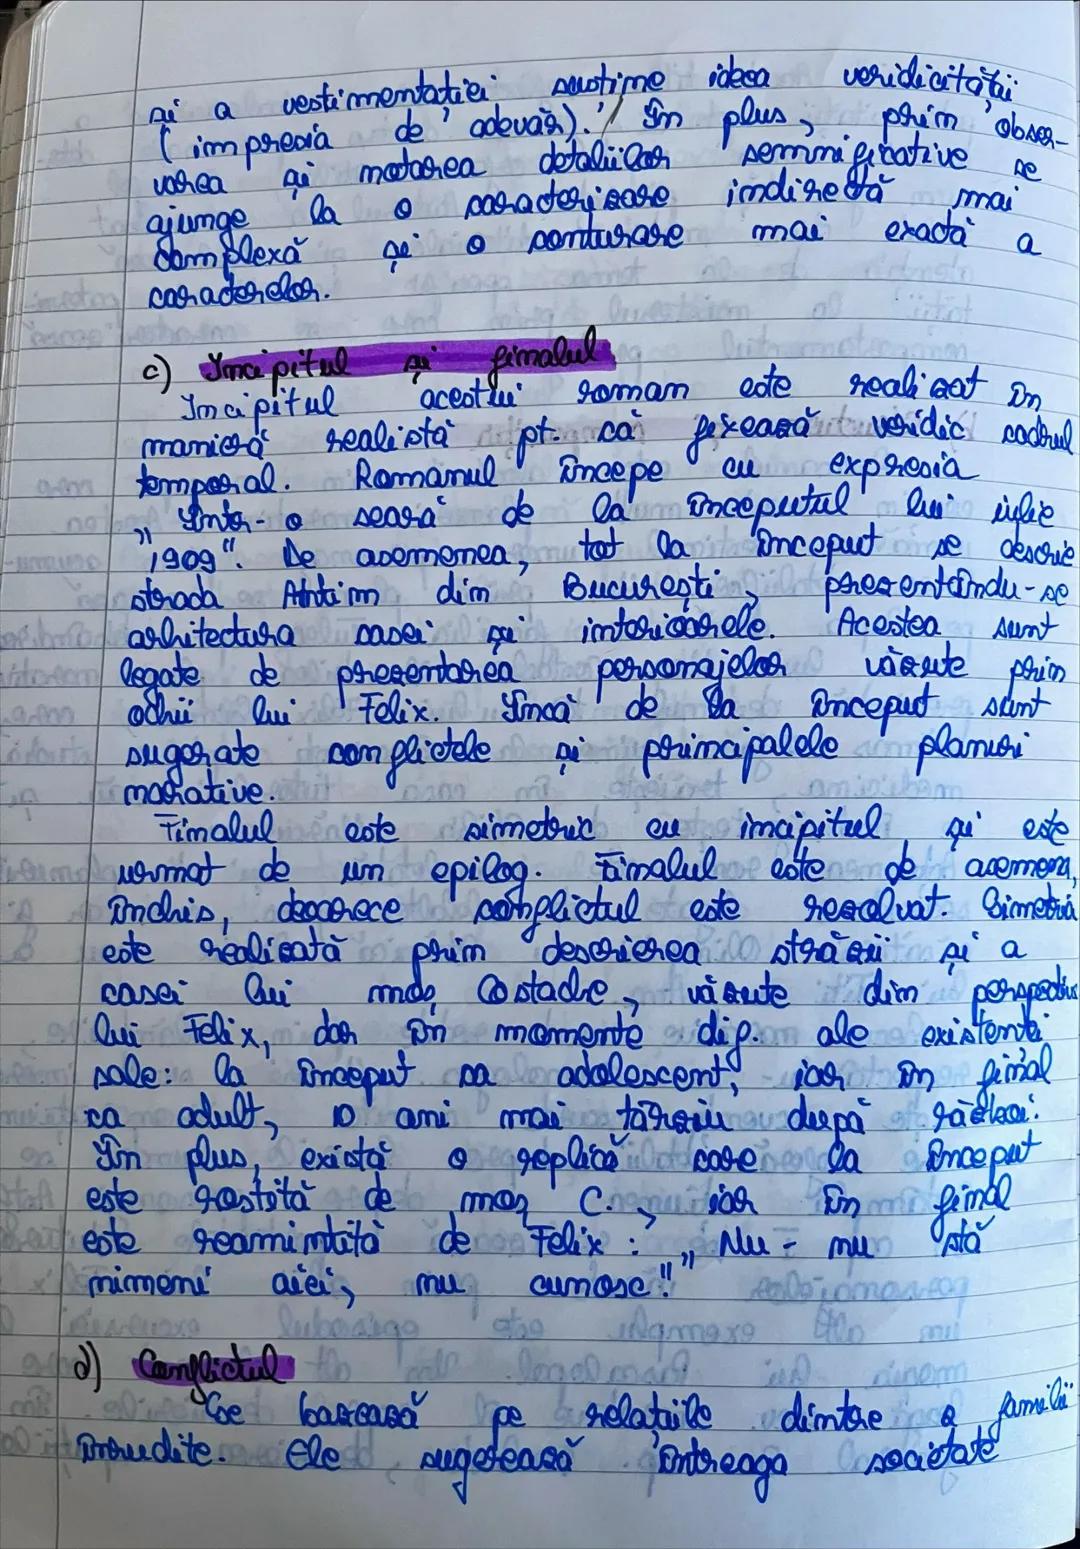 și a vestimentației susține ideea veridicității
(impresia de adevăr). În plus, prin obser-
varea și notarea detaliilor semnificative se
ajunge la o caracterizare indirectă mai
complexă și o conturare mai exactă a
caracterelor.
c) Incipitul și finalul
Incipitul acestui roman este realizat în
manieră realistă pt. că fixează veridic cadrul
temporal. Romanul începe cu expresia
„Într-o seară de la începutul lui iulie
1909". De asemenea, tot la început se descrie
strada Antim din București, prezentându-se
arhitectura casei și interioarele. Acestea sunt
legate de prezentarea personajelor văzute prin
ochii lui Felix. Încă de la început sunt
sugerate conflictele și principalele planuri
narative.
Finalul este simetric cu incipitul și este
urmat de un epilog. Finalul este de asemena,
închis, deoarece conflictul este rezolvat. Simetria
este realizată prin descrierea străzii și a
casei lui moș Costache, văzute din perspectiva
lui Felix, dar în momente dif. ale existenței
sale: la început ca adolescent, iar în final
ca adult, 10 ani mai târziu după război.
În plus, există o replică care la început
este rostită de moș C., iar în final
este reamintită de Felix: „Nu-nu stă
nimeni aici, nu cunosc!"
d) Conflictul
Se bazează pe relațiile dintre 2 familii
înrudite. Ele sugerează întreaga societate